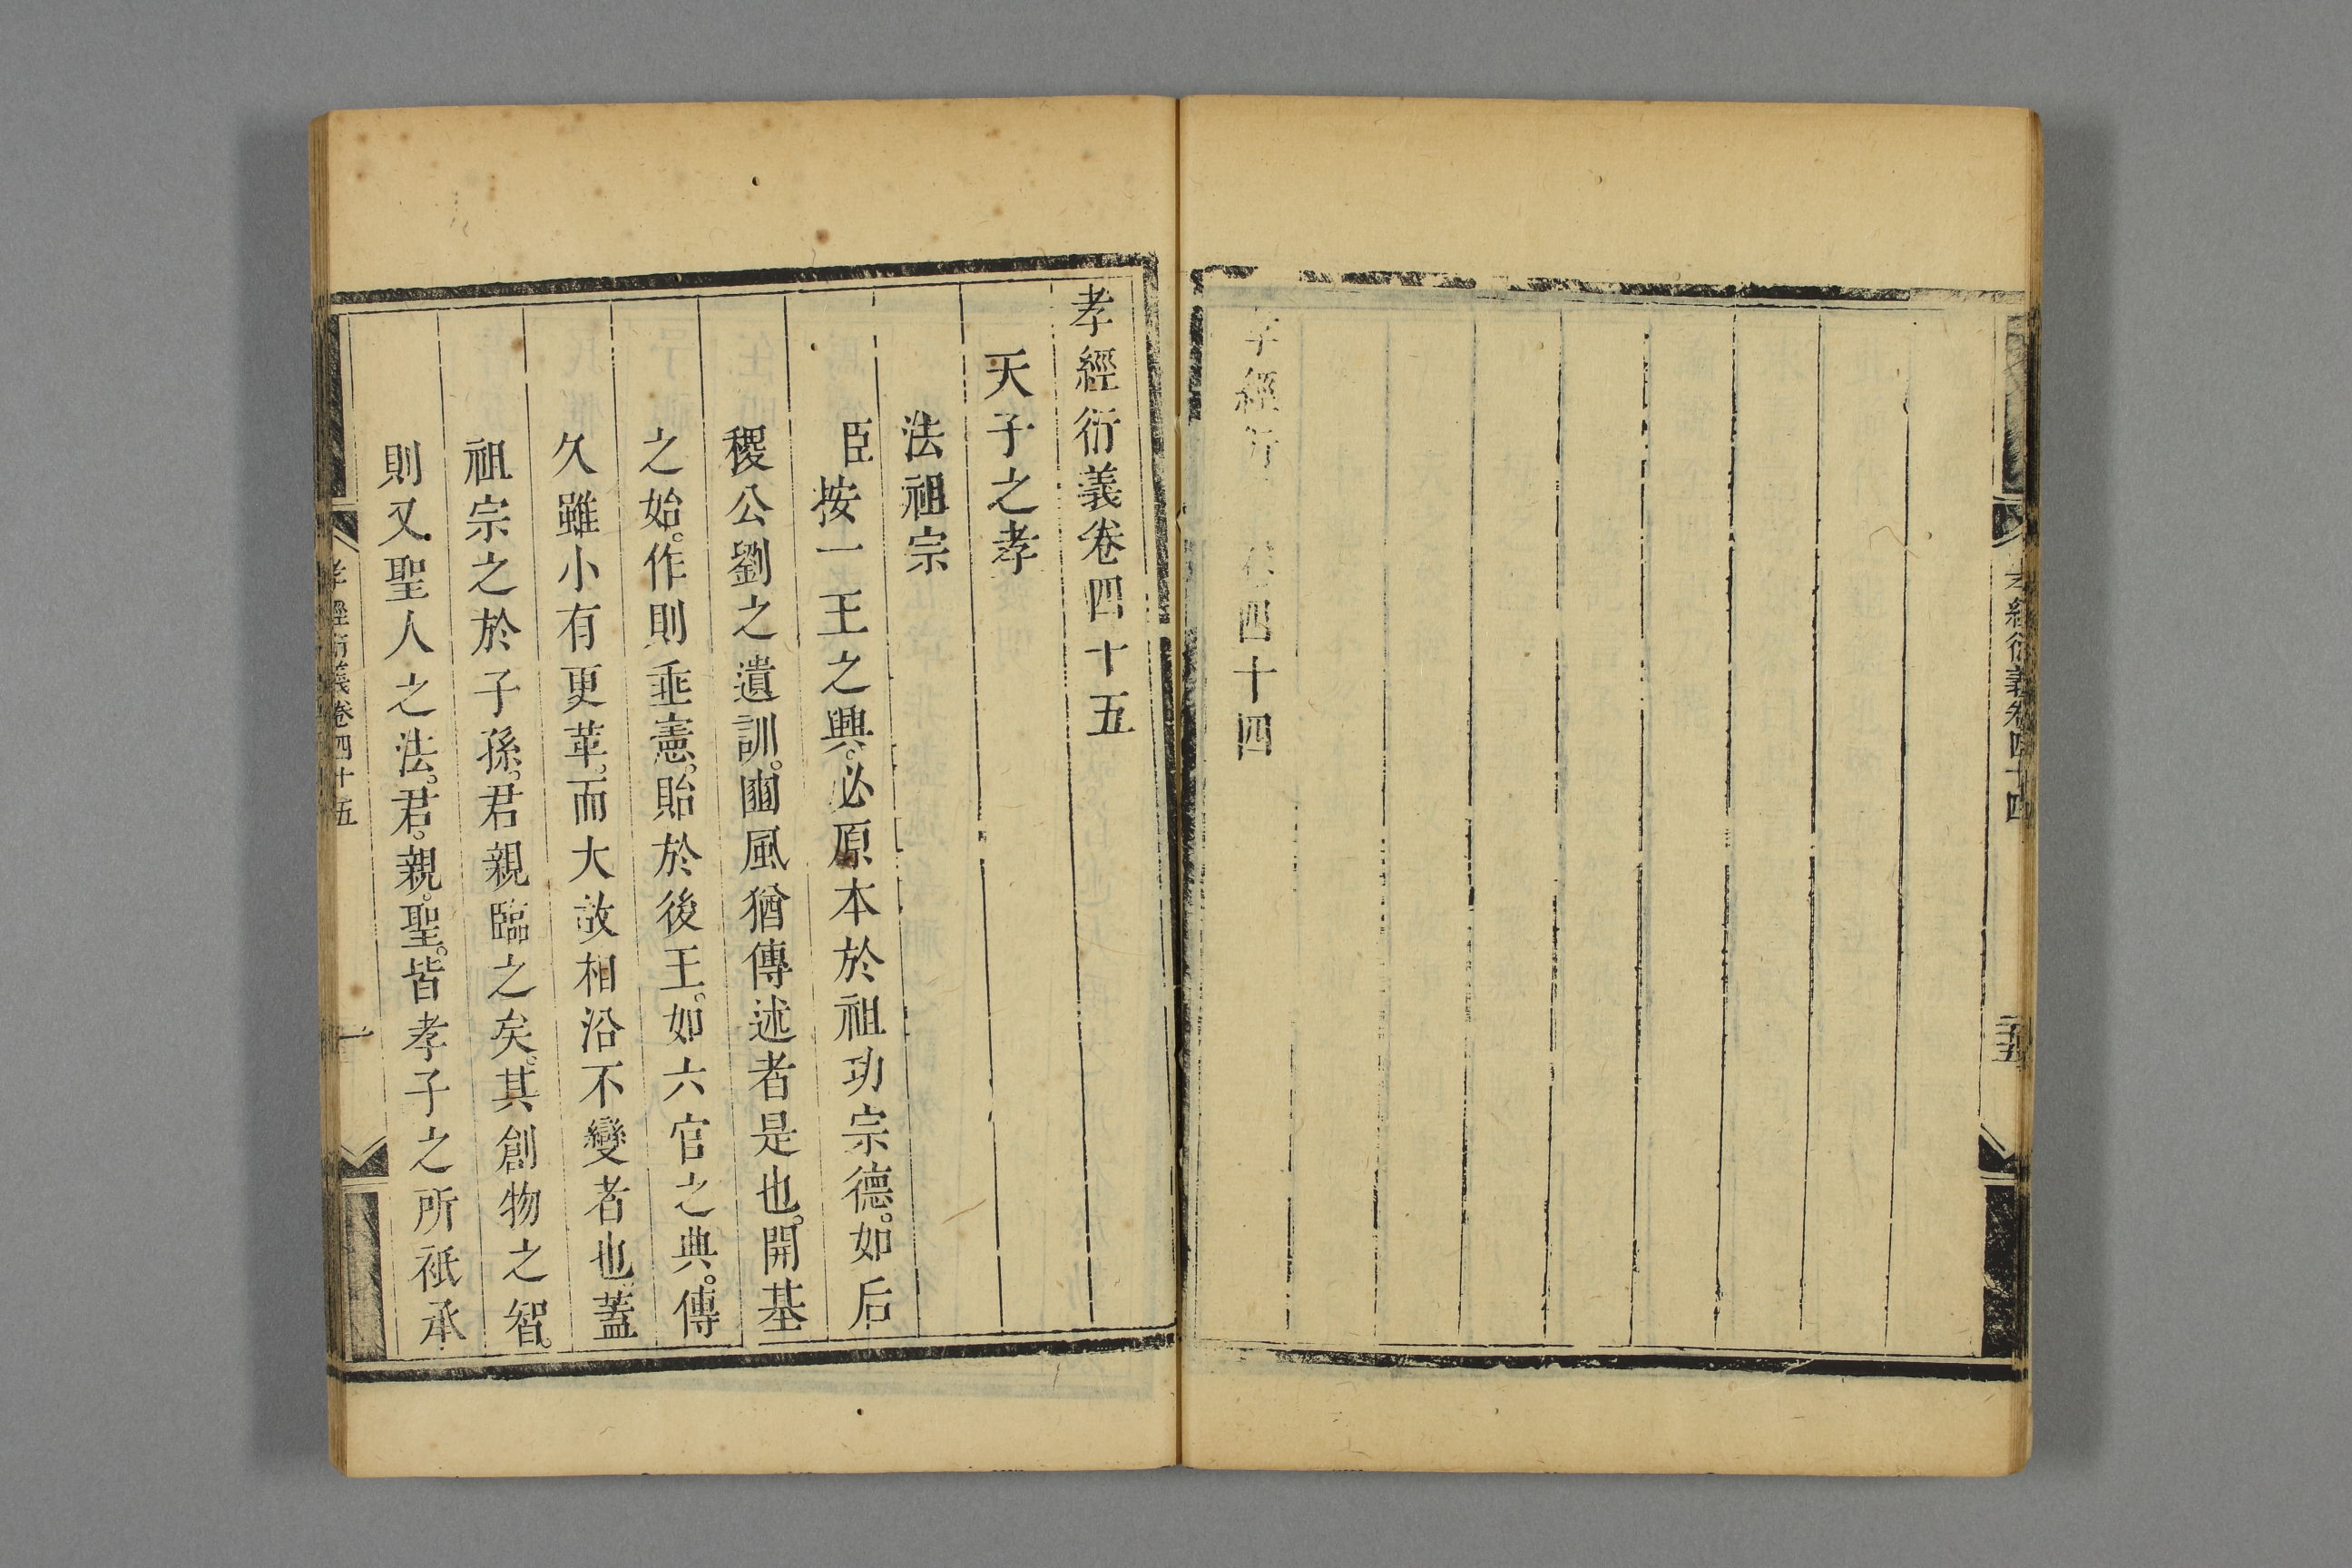 孝經衍義卷四十四
二十五
孝經衍 卷四十四
孝經衍義卷四十五
天子之孝
法祖宗
臣按一王之興。必原本於祖功宗德。如后
稷公劉之遺訓。豳風猶傳述者是也。開基
之始。作則垂憲。貽於後王。如六官之典。傳
久雖小有更革。而大故相沿不變者也。蓋
祖宗之於子孫。君親臨之矣。其創物之智。
則又聖人之法。君。親。聖。皆孝子之所祗承
孝經衍義卷四十五
一